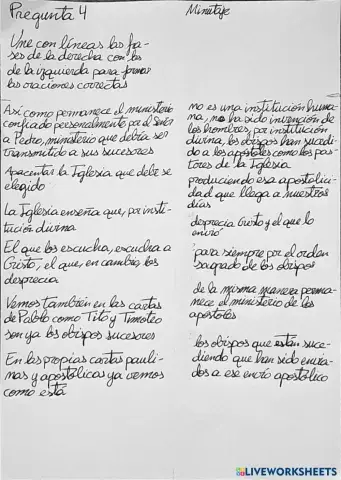 Pregunta 4
Une con líneas las fra-
ses de la derecha con las
de la izquierda para formar
las oraciones correctas
Así como permanece el ministerio
confiado personalmente por el Señor
a Pedro, ministerio que debía ser
transmitido a sus sucesores
Apacentar la Iglesia que debe se
elegido
La Iglesia enseña que, por insti-
tución divina
El que los escucha, escucha a
Cristo, el que, en cambio, los
desprecia
Vemos también en las cartas
de Pablo como Tito y Timoteo
son ya los obispos sucesores
En las propias cartas pauli-
nas y apostólicas ya vemos
como está
Minutaje
no es una institución huma-
na, no ha sido invención de
los hombres, por institución
divina, los obispos han sucedi-
do a los apóstoles como los pas-
tores de la Iglesia
produciendo esa apostolici-
dad que llega a nuestros
días
desprecia Cristo y el que lo
envió
para siempre por el orden
sagrado de los obispos
de la misma manera perma-
nece el ministerio de los
apóstoles
los obispos que están suce-
diendo que han sido envia-
dos a ese envió apostólico
LIVEWORKSHEETS